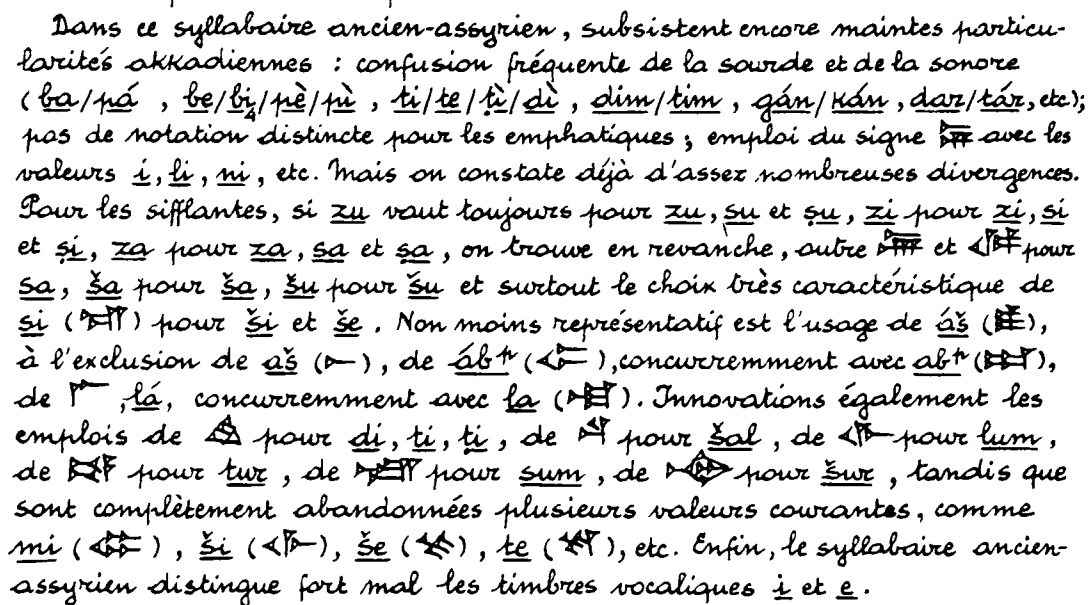 Dans ce syllabaire ancien-assyrien, subsistent encore maintes particu-
larités akkadiennes : confusion fréquente de la sourde et de la sonore
(ba/pá, be/bi₄/pè/pì, ti/te/ṭì/dì, dim/tim, gán/kán, dar/tár, etc.);
pas de notation distincte pour les emphatiques ; emploi du signe 𒉌 avec les
valeurs ì, lí, ni, etc. Mais on constate déjà d'assez nombreuses divergences.
Pour les sifflantes, si zu vaut toujours pour zu, su et ṣu, zi pour zi, si
et ṣi, za pour za, sa et ṣa, on trouve en revanche, outre et pour
sa, ša pour ša, šu pour šu et surtout le choix très caractéristique de
si (𒋛) pour ši et še. Non moins représentatif est l'usage de áš (𒀾),
à l'exclusion de aš (𒀸), de áb⁺ (𒀖), concurremment avec ab⁺ (𒀊),
de 𒇲, lá, concurremment avec la (𒆷). Innovations également les
emplois de 𒄭 pour di, ti, ṭi, de pour šal, de pour lum,
de 𒌉 pour tur, de 𒋧 pour sum, de pour šur, tandis que
sont complètement abandonnées plusieurs valeurs courantes, comme
mi (𒈪), ši (𒅆), še (𒊺), te (𒋼), etc. Enfin, le syllabaire ancien-
assyrien distingue fort mal les timbres vocaliques i et e.